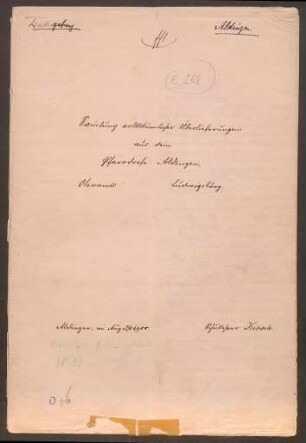 Ludwigsburg Aldingen.
Sam̄lung volkstümlicher Überlieferungen
aus dem
Pfarrdorfe Aldingen
Oberamts Ludwigsburg
Aldingen, im August 1900. Schullehrer